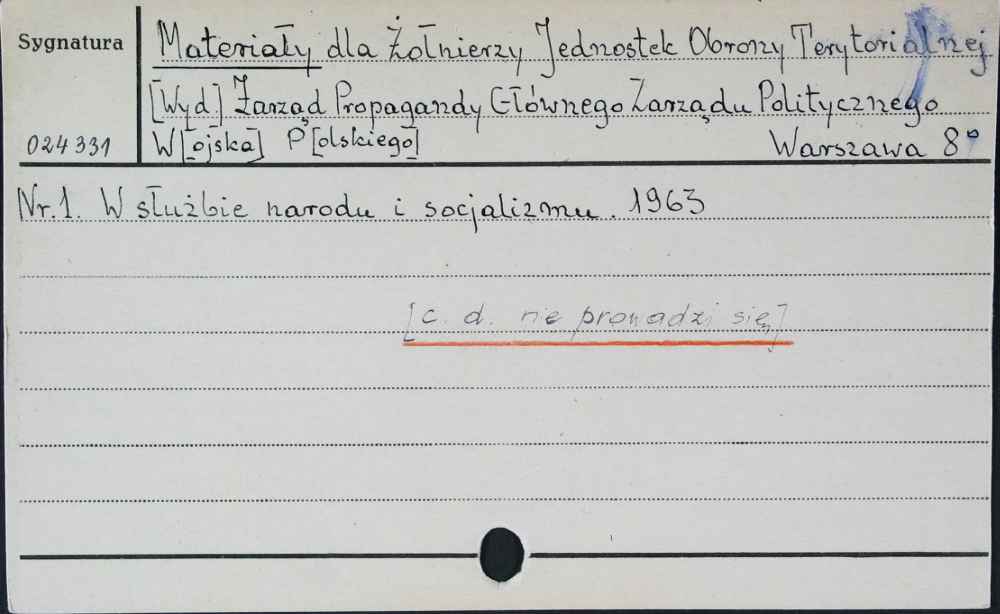 Sygnatura
Materiały dla Żołnierzy Jednostek Obrony Terytorialnej
[Wyd] Zarząd Propagandy Głównego Zarządu Politycznego
024331
W[ojska] P[olskiego] Warszawa 8°
Nr. 1. W służbie narodu i socjalizmu. 1963
[c. d. nie prowadzi się]